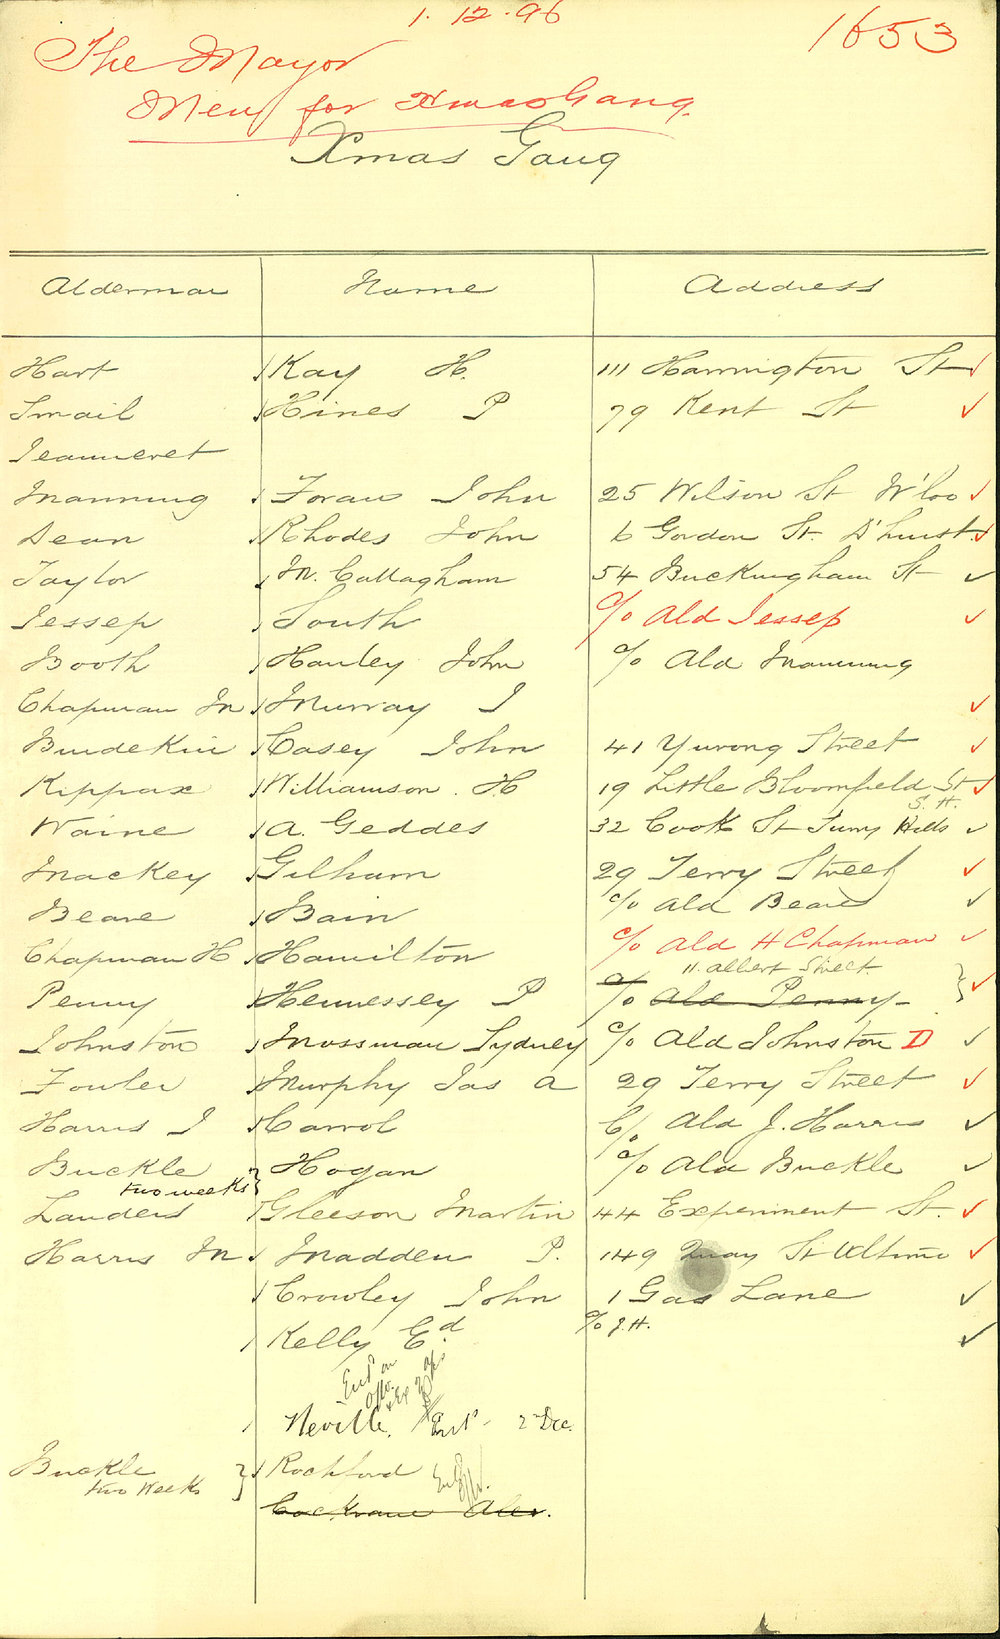 1.12.96
1653
The Mayor
Men for Xmas Gang.
Xmas Gang
Alderman Name Address
Hart Kay H. 111 Harrington St
Smail Hines P 79 Kent St
Jeanneret
Manning Foran John 25 Wilson St W'loo
Dean Rhodes John 6 Gordon St. D'hurst
Taylor M. Callagham 54 Buckingham St
Jessep South c/o Ald Jessep
Booth Hanley John c/o Ald Manning
Chapman M Murray J
Burdekin Casey John 41 Yurong Street
Kippax Williamson. H 19 Little Bloomfield St
S. H.
Waine A. Geddes 32 Cook St Surry Hills
Mackey Gilham 29 Terry Street
Beare Bain c/o Ald Beare
Chapman H Hamilton c/o Ald H Chapman
11. Albert Street
Penny Hennessey P c/o Ald Penny
Johnston Mossman Sydney c/o Ald Johnston D
Fowler Murphy Jas A 29 Terry Street
Harris J Carrol C/o Ald J. Harris
Buckle Hogan c/o Ald Buckle
two weeks
Landers Gleeson Martin 44 Experiment St.
Harris M Madden P. 149 Quay St Ultimo
Crowley John 1 Gas Lane
Kelly Ed c/o J.H.
Neville. 2 Dec.
Buckle Rochford
two weeks
Cockrane Alex.